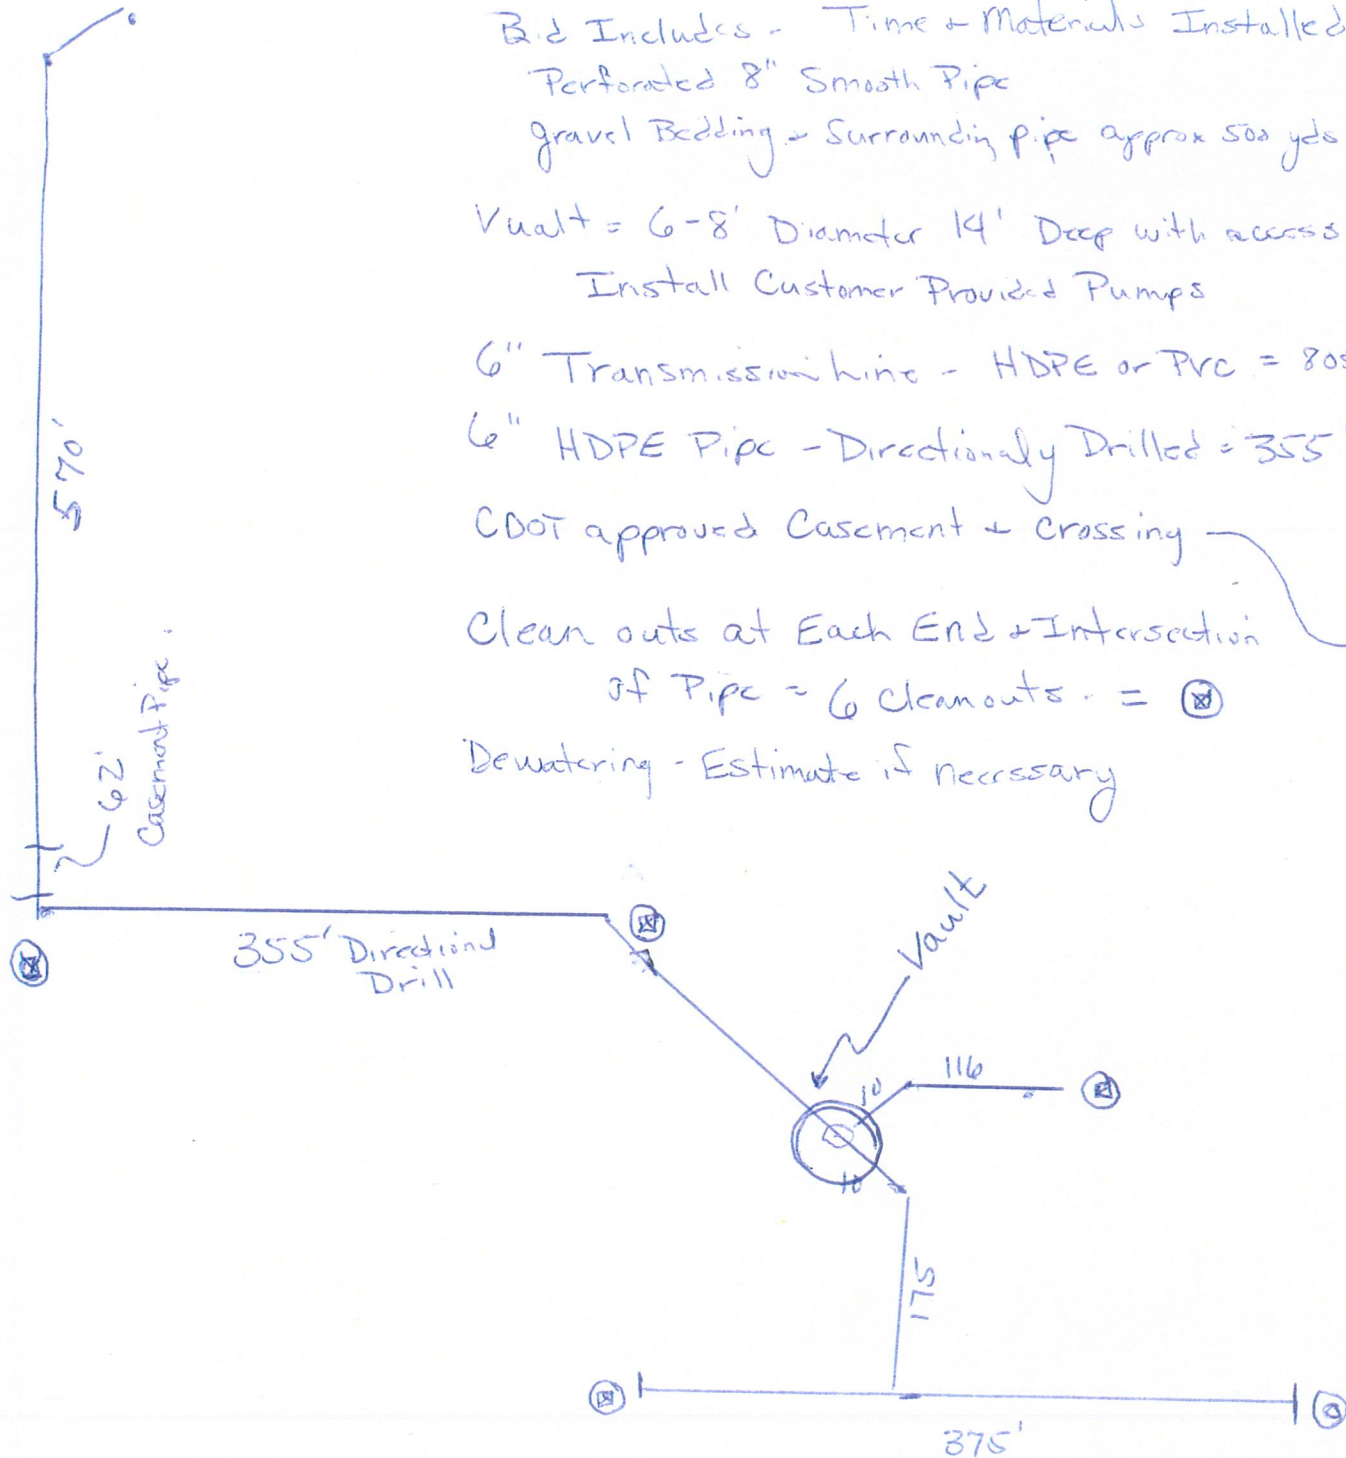 Bid Includes - Time + Materials Installed
Perforated 8" Smooth Pipe
gravel Bedding + Surrounding pipe approx 500 yds
Vualt = 6-8' Diameter 14' Deep with access
Install Customer Provided Pumps
6" Transmission Line - HDPE or PVC = 805
6" HDPE Pipe - Directionaly Drilled = 355'
CDOT approved Casement + Crossing
Clean outs at Each End + Intersection
of Pipe = 6 Cleanouts. =
Dewatering - Estimate if necessary
570'
62'
Casement Pipe.
355' Directional
Drill
Vault
10'
116
10
175
375'